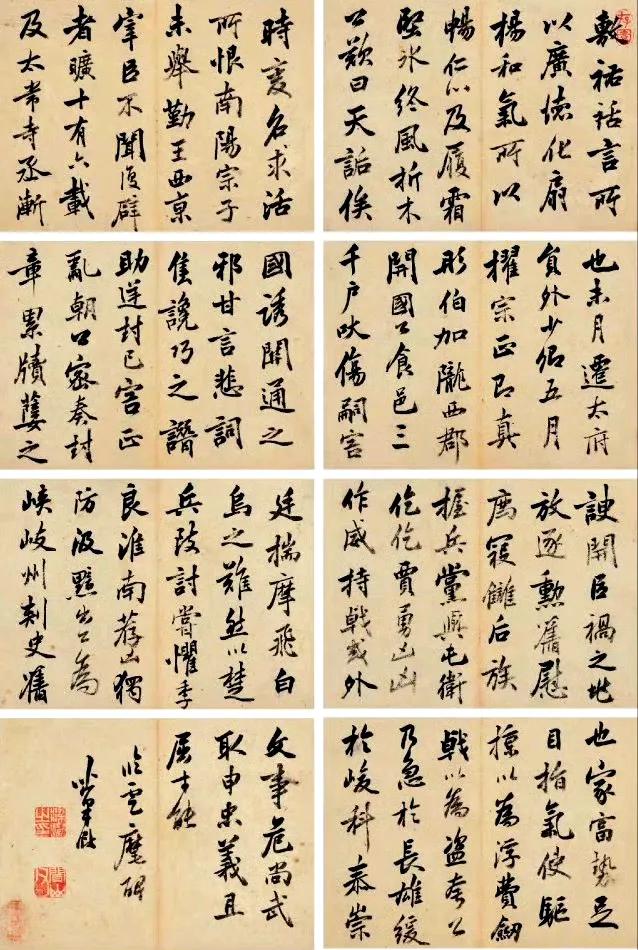 敷祐話言所
以廣德化扇
楊和氣所以
暢仁心及履霜
堅冰終風折木
公歎曰天詬俟
時變名求活
所恨南陽宗子
未舉勤王西京
宰臣不聞復辟
者曠十有六載
及太常寺丞漸
也未月遷太府
員外少卿五月
擢宗正即真
彤伯加隴西郡
開國公食邑三
千戶吠傷嗣害
國誘開通之
邪甘言悲詞
售讒巧之譖
助逆封已害正
亂朝公密奏封
章累牘薆之
諛開臣禍之兆
放逐勳舊慰
薦寇讎后族
握兵黨與屯衛
仡仡賈勇凶凶
作威持戟或外
廷揣摩飛白
烏之難然以楚
兵致討嘗懼季
良淮南荐凶獨
防汲黯出公為
峽岐州刺史舊
也家富勢足
目指氣使驅
掠以為浮費劒
戟以為盜夸公
乃急於長雄緩
於峻科泰崇
文事危尚武
取申忠義且
屈才能
臨雲麾碑